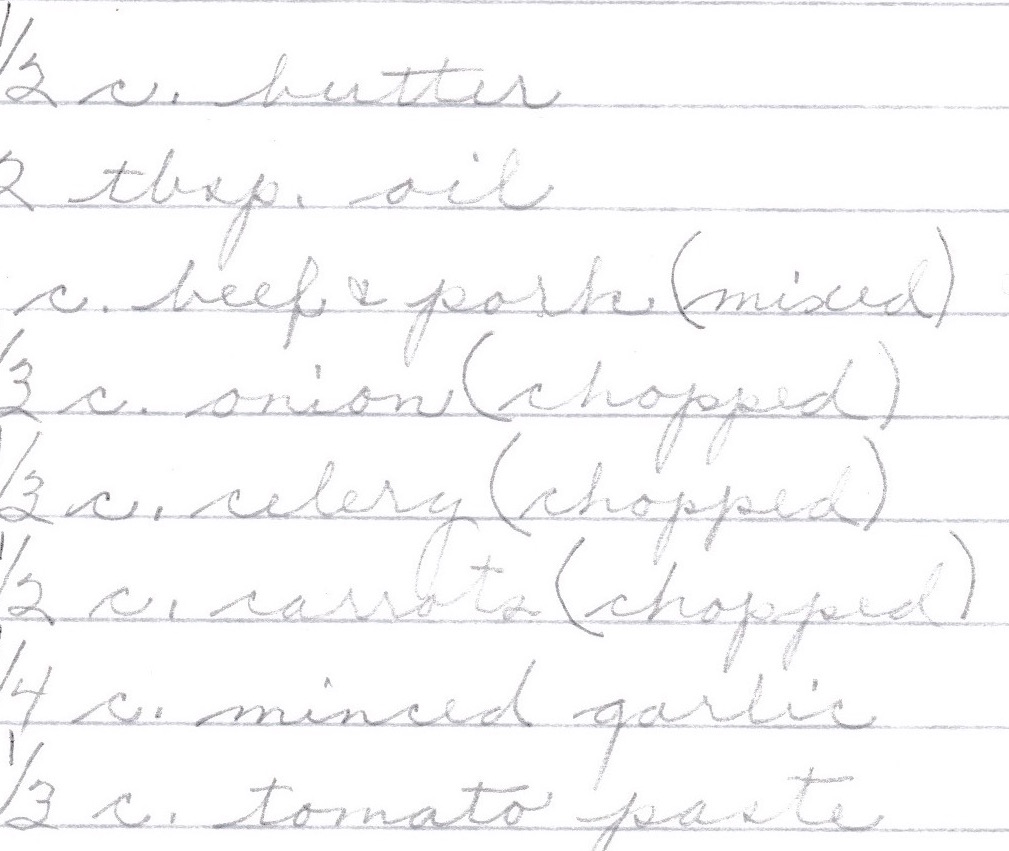 1/2 c. butter
2 tbsp. oil
c. beef & pork (mixed)
3 c. onion (chopped)
1/3 c. celery (chopped)
1/2 c. carrots (chopped)
1/4 c. minced garlic
1/3 c. tomato paste